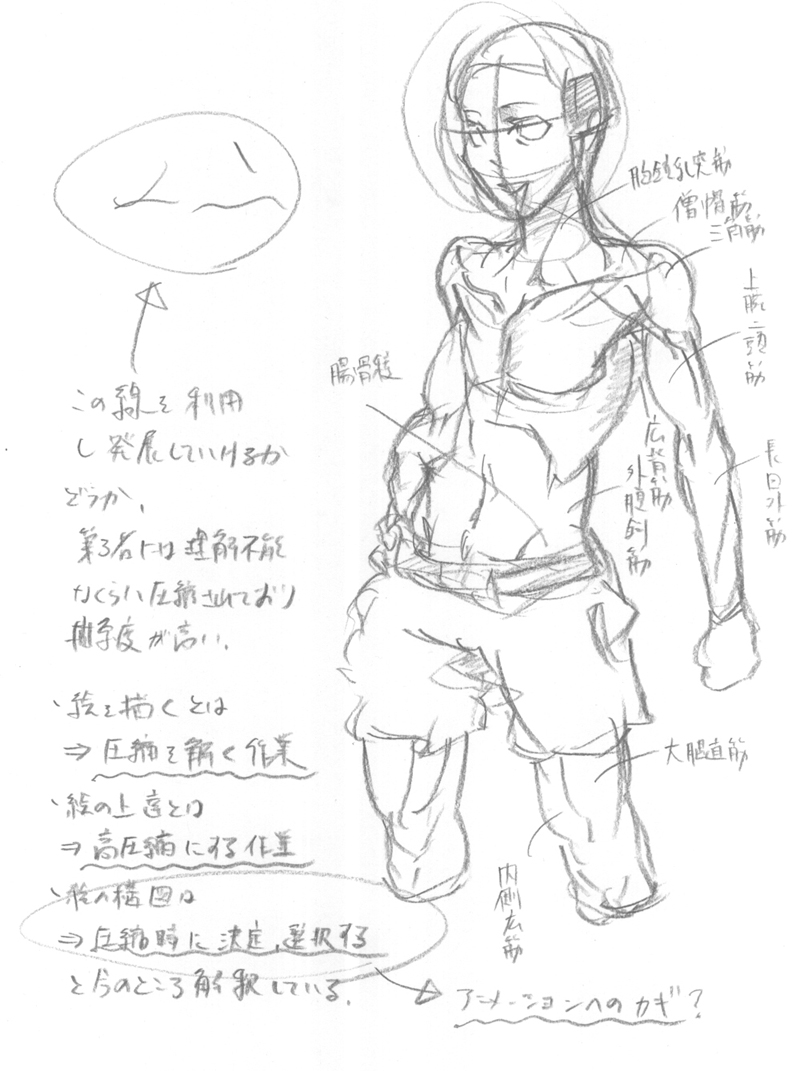 胸鎖乳突筋
僧帽筋
三角筋
上腕二頭筋
腸骨稜
広背筋
外腹斜筋
長
筋
この線を利用
し発展していけるか
どうか、
第3者には理解不能
なくらい圧縮されており
抽象度が高い。
、絵を描くとは
⇒圧縮を解く作業
、絵の上達とは
⇒高圧縮にする作業
、絵の構図は
⇒圧縮時に決定、選択する
と今のところ解釈している。
大腿直筋
内側広筋
アニメーションへのカギ?